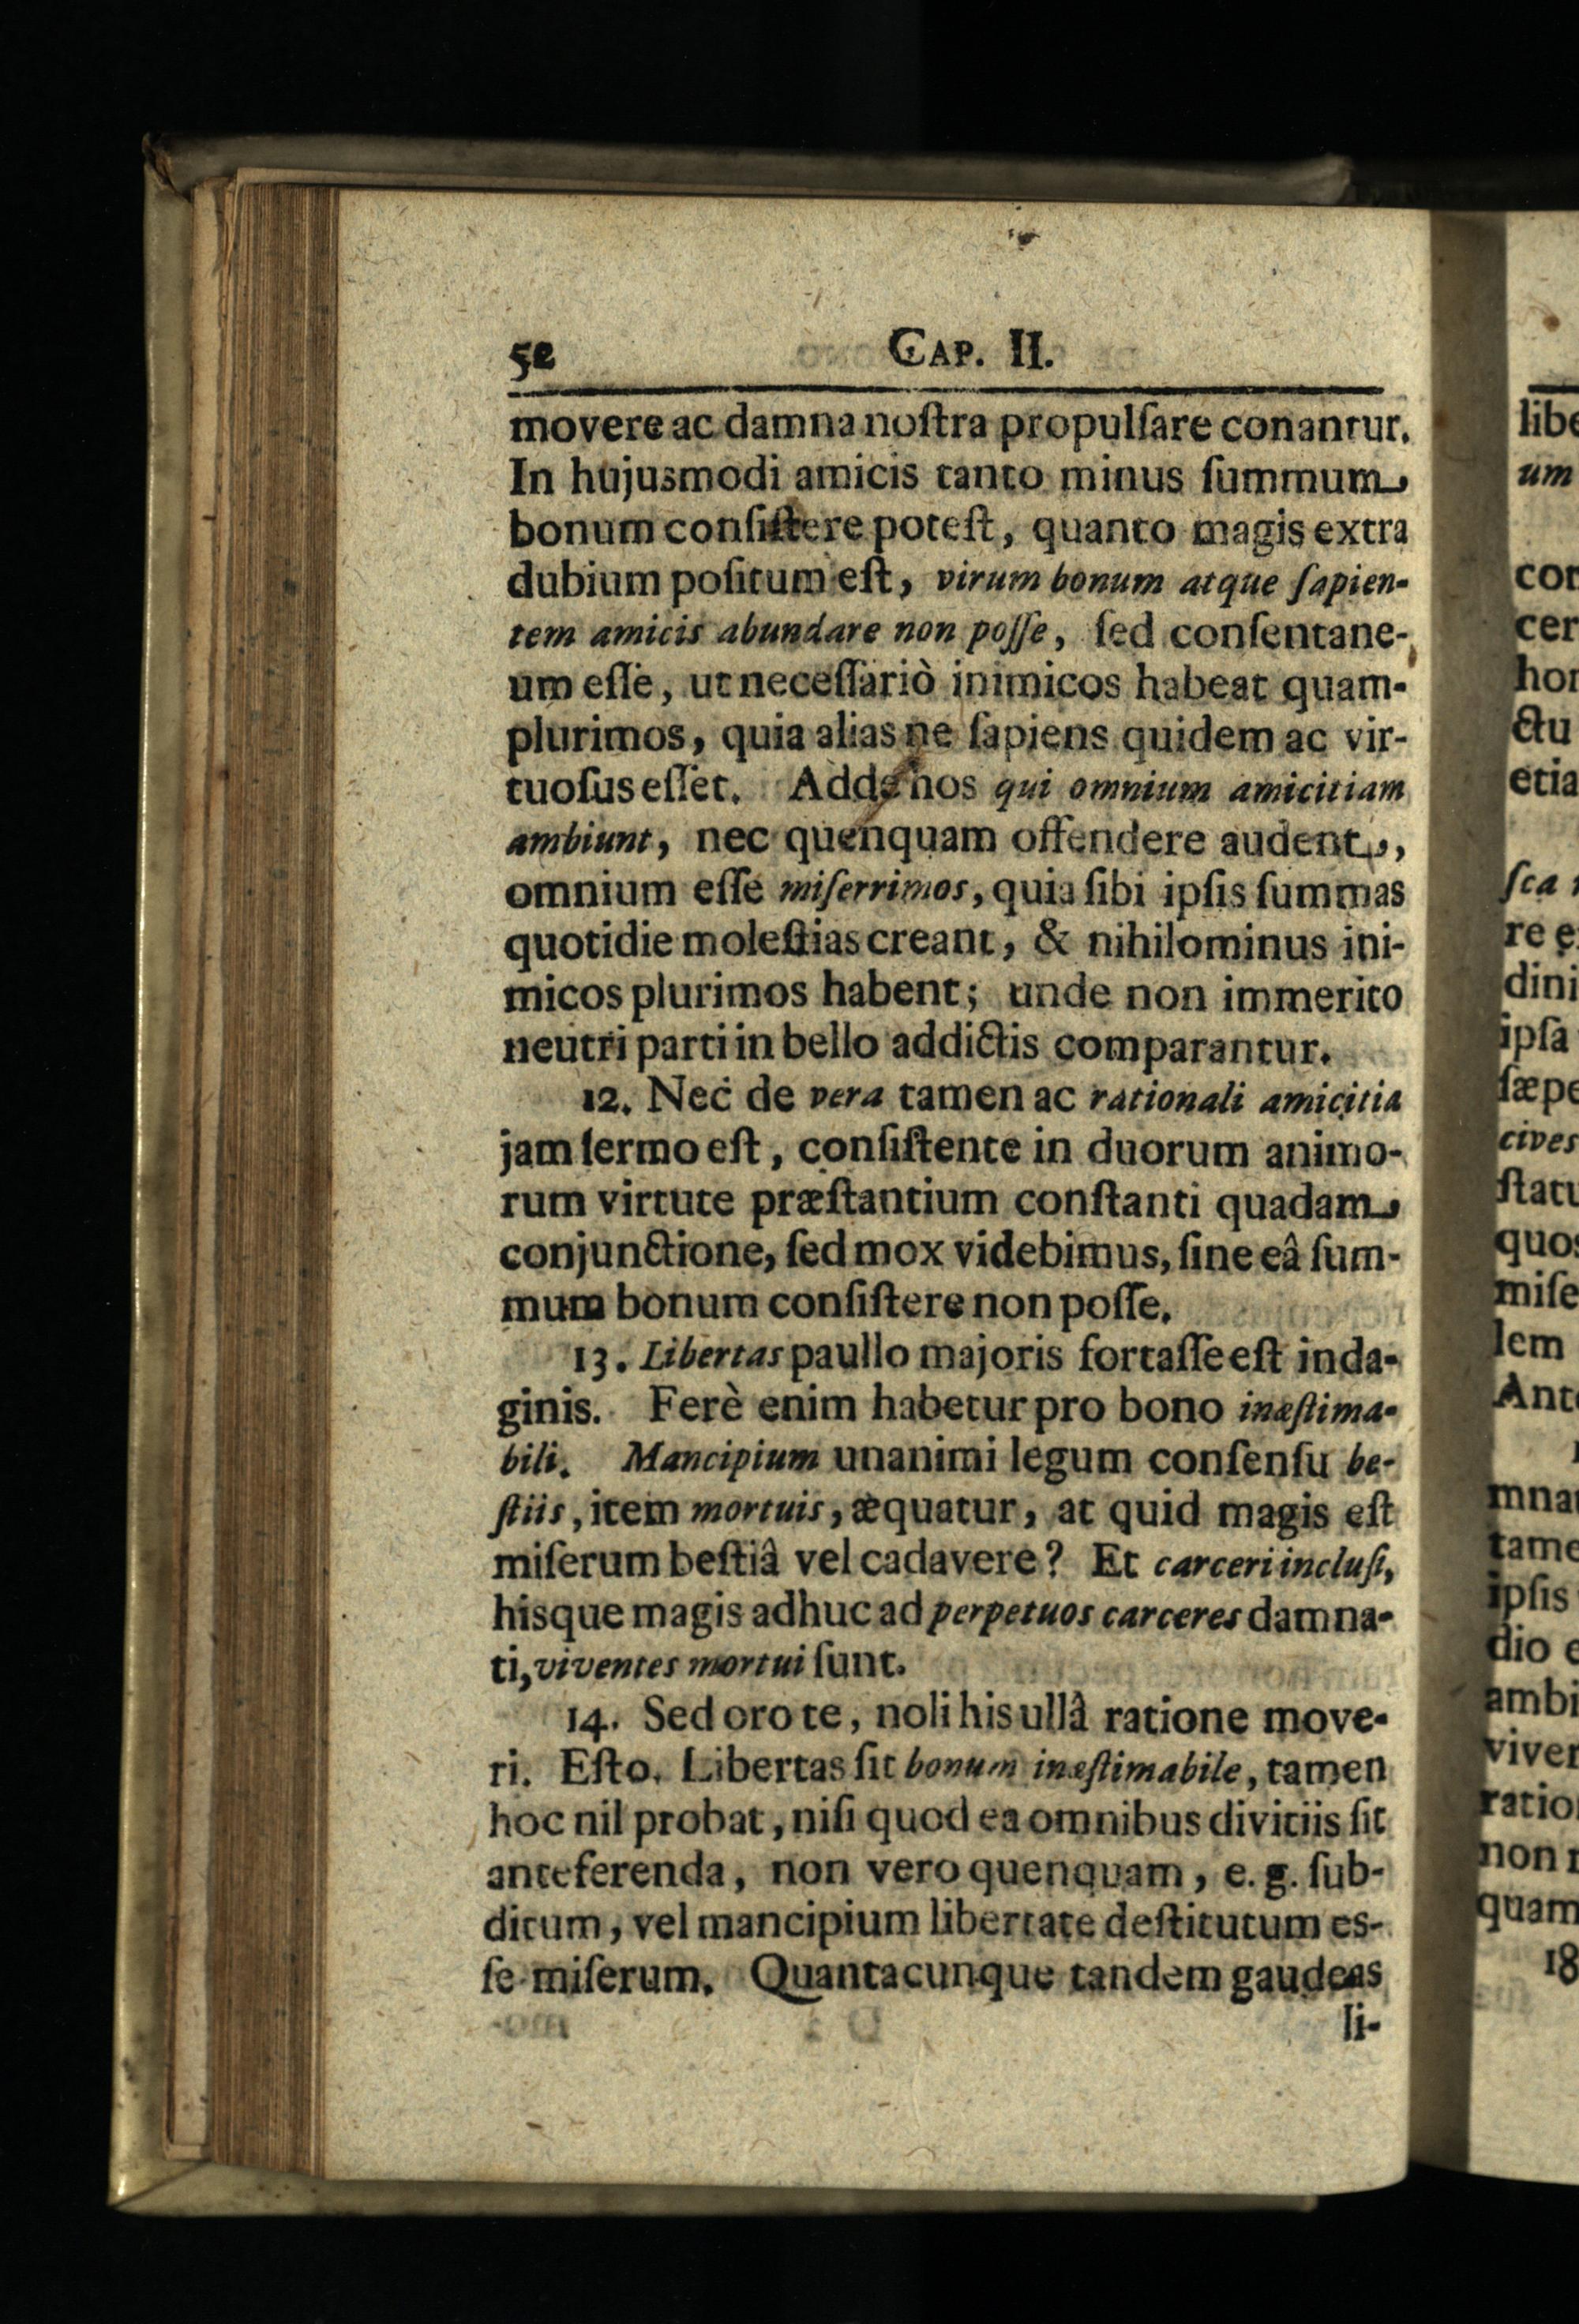 52 CAP. II.
movere ac damna noſtra propulſare conantur.
In hujusmodi amicis tanto minus ſummum
bonum conſiſtere poteſt, quanto magis extra
dubium poſitum eſt, virum bonum atque ſapien-
tem amicis abundare non poſſe, ſed conſentane-
um eſſe, ut neceſſariò inimicos habeat quam-
plurimos, quia alias ne ſapiens quidem ac vir-
tuoſus eſſet. Adde nos qui omnium amicitiam
ambiunt, nec quenquam offendere audent,
omnium eſſe miſerrimos, quia ſibi ipſis ſummas
quotidie moleſtias creant, & nihilominus ini-
micos plurimos habent; unde non immerito
neutri parti in bello addictis comparantur.
12. Nec de vera tamen ac rationali amicitia
jam ſermo eſt, conſiſtente in duorum animo-
rum virtute præſtantium conſtanti quadam
conjunctione, ſed mox videbimus, ſine eâ ſum-
mum bonum conſiſtere non poſſe.
13. Libertas paullo majoris fortaſſe eſt inda-
ginis. Ferè enim habetur pro bono inæſtima-
bili. Mancipium unanimi legum conſenſu be-
ſtiis, item mortuis, æquatur, at quid magis eſt
miſerum beſtiâ vel cadavere? Et carceri incluſi,
hisque magis adhuc ad perpetuos carceres damna-
ti, viventes mortui ſunt.
14. Sed oro te, noli his ullâ ratione move-
ri. Eſto. Libertas ſit bonum inæſtimabile, tamen
hoc nil probat, niſi quod ea omnibus divitiis ſit
anteferenda, non vero quenquam, e. g. ſub-
ditum, vel mancipium libertate deſtitutum es-
ſe miſerum. Quantacunque tandem gaudeas
li-